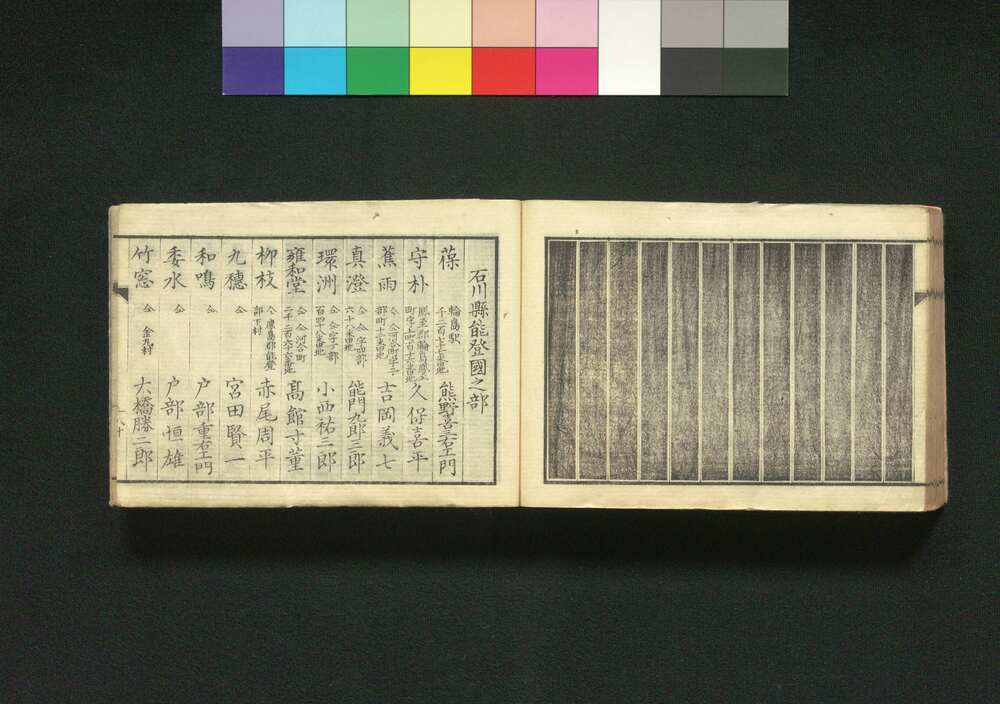 石川縣能登國之部
葆 輪島駅 千三百七十五番地 熊野喜右エ門
守朴 鳳至郡輪島鳳至町字上町百十六番地 久保喜平
蕉雨 仝 仝河合町 吉岡義七
真澄 仝 仝 六十八番地 能門九郎三郎
環洲 仝 仝 百四十八番地 小西祐三郎
雍和堂 仝 仝河合町 二千二百六十六番地 髙館寸董
柳枝 仝 鹿島郡能登部下村 赤尾周平
九穗 仝 宮田賢一
和鳴 仝 戸部重右エ門
委水 仝 戸部恒雄
竹窓 仝 金丸村 大橋勝二郎